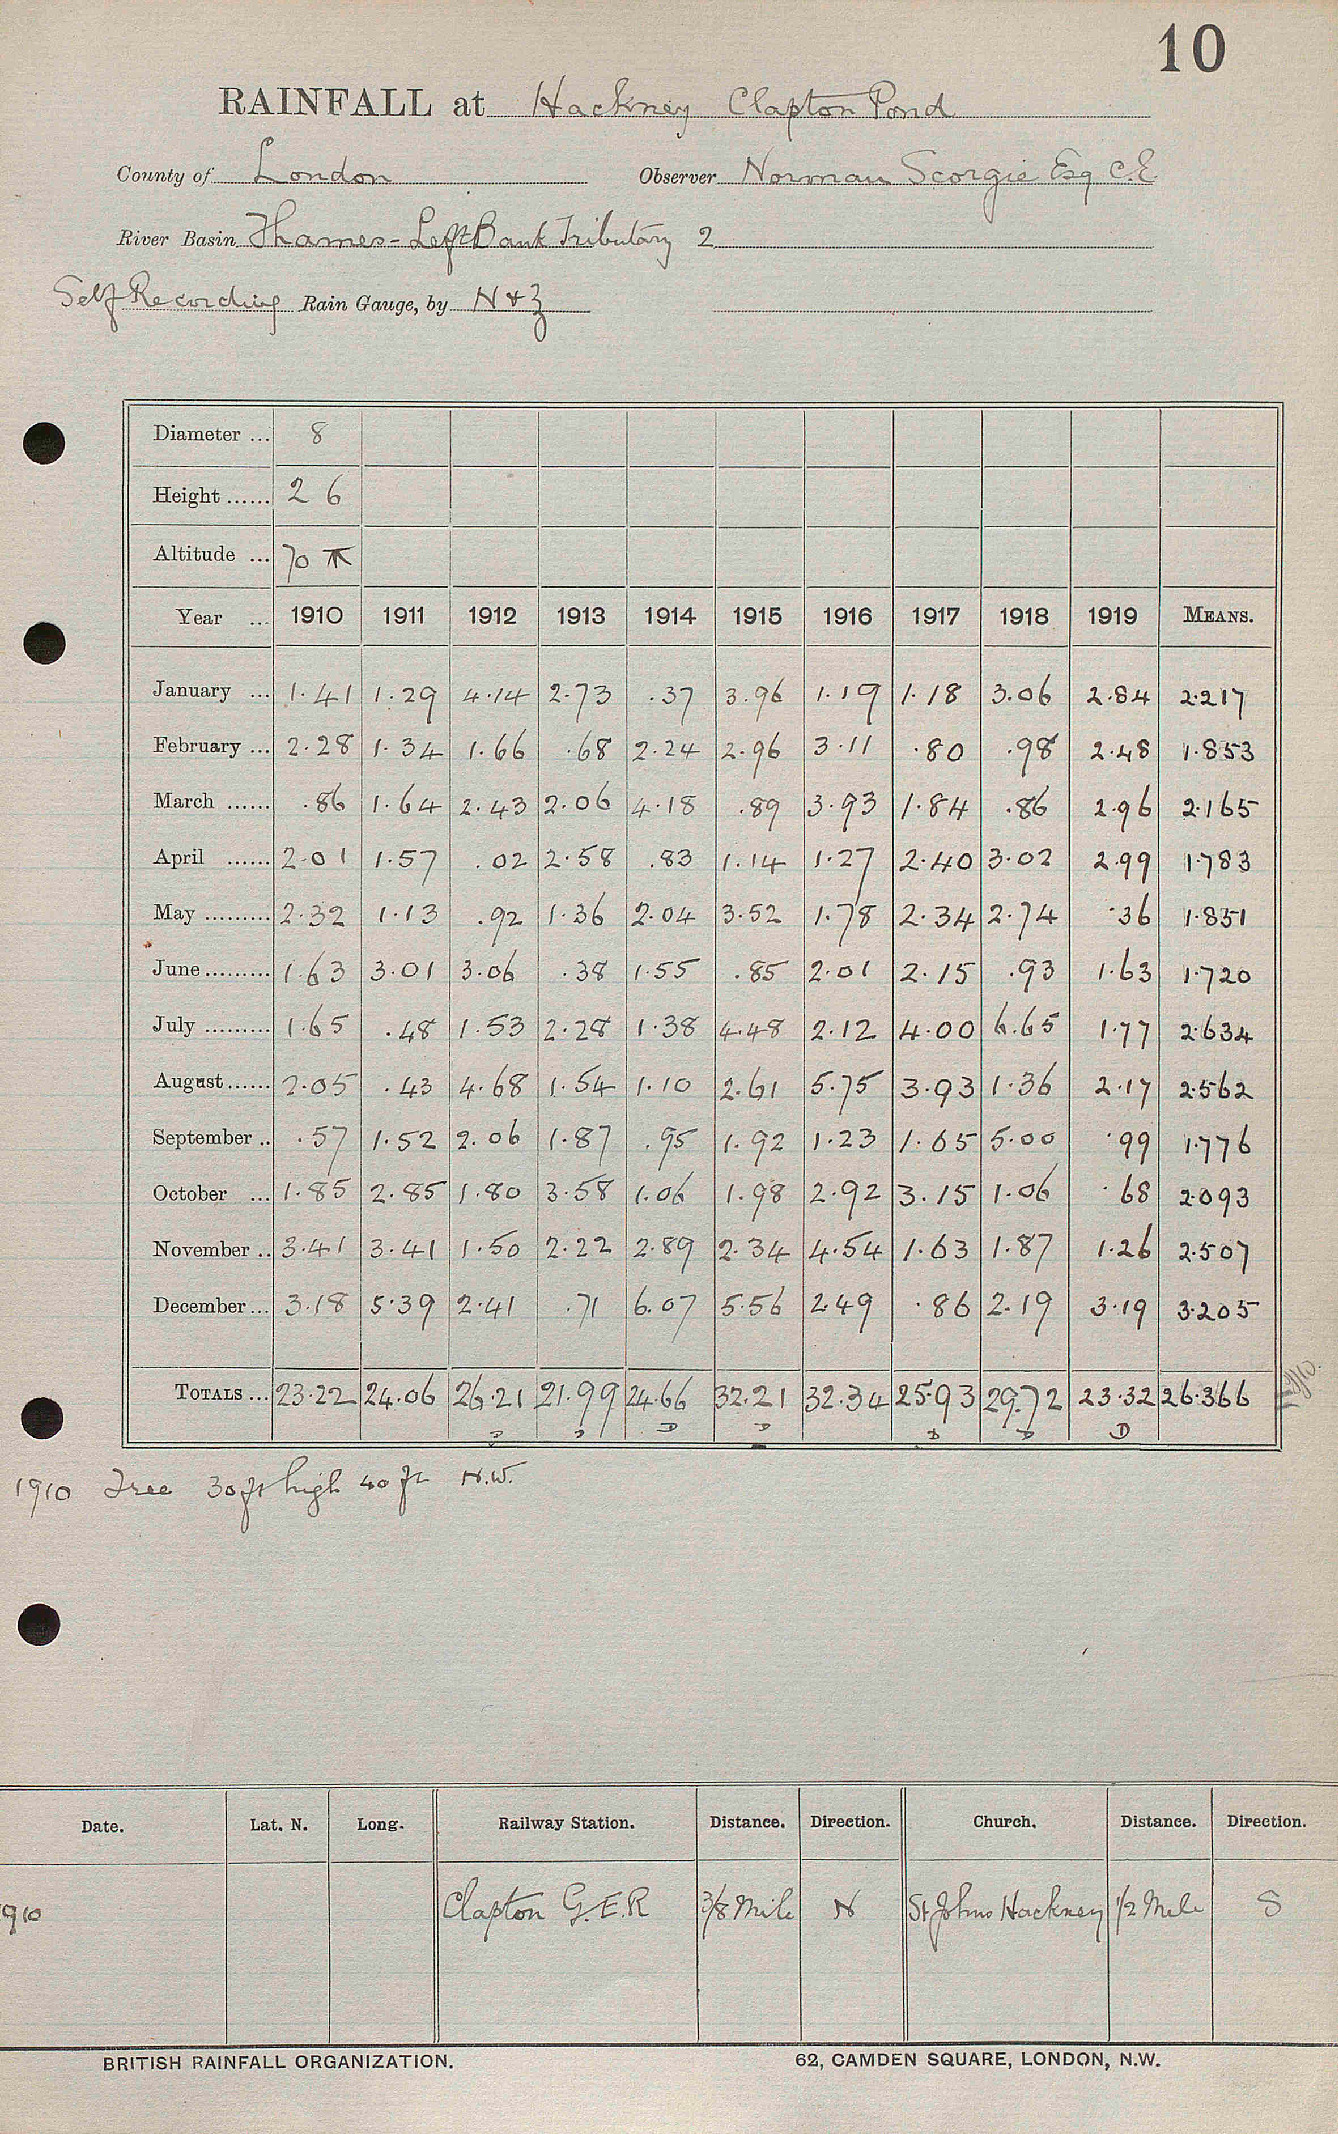 10
RAINFALL at Hackney Clapton Pond
County of London Observer Norman Scorgie Esq C.E.
River Basin Thames - Left Bank Tributary 2
Self Recording Rain Gauge, by N & Z
Diameter ... 8
Height ...... 2 6
Altitude ... 70
Year ... 1910 1911 1912 1913 1914 1915 1916 1917 1918 1919 MEANS.
January ... 1.41 1.29 4.14 2.73 .37 3.96 1.19 1.18 3.06 2.84 2.217
February ... 2.28 1.34 1.66 .68 2.24 2.96 3.11 .80 .98 2.48 1.853
March ...... .86 1.64 2.43 2.06 4.18 .89 3.93 1.84 .86 2.96 2.165
April ...... 2.01 1.57 .02 2.58 .83 1.14 1.27 2.40 3.02 2.99 1.783
May ......... 2.32 1.13 .92 1.36 2.04 3.52 1.78 2.34 2.74 .36 1.851
June ......... 1.63 3.01 3.06 .38 1.55 .85 2.01 2.15 .93 1.63 1.720
July ......... 1.65 .48 1.53 2.28 1.38 4.48 2.12 4.00 6.65 1.77 2.634
August ...... 2.05 .43 4.68 1.54 1.10 2.61 5.75 3.93 1.36 2.17 2.562
September .. .57 1.52 2.06 1.87 .95 1.92 1.23 1.65 5.00 .99 1.776
October ... 1.85 2.85 1.80 3.58 1.06 1.98 2.92 3.15 1.06 .68 2.093
November .. 3.41 3.41 1.50 2.22 2.89 2.34 4.54 1.63 1.87 1.26 2.507
December ... 3.18 5.39 2.41 .71 6.07 5.56 2.49 .86 2.19 3.19 3.205
TOTALS ... 23.22 24.06 26.21 21.99 24.66 32.21 32.34 25.93 29.72 23.32 26.366
D D D D D D D
1910 Tree 30 ft high 40 ft N.W.
Date. Lat. N. Long. Railway Station. Distance. Direction. Church. Distance. Direction.
910 Clapton G.E.R 3/8 Mile N St Johns Hackney 1/2 Mile S
BRITISH RAINFALL ORGANIZATION. 62, CAMDEN SQUARE, LONDON, N.W.